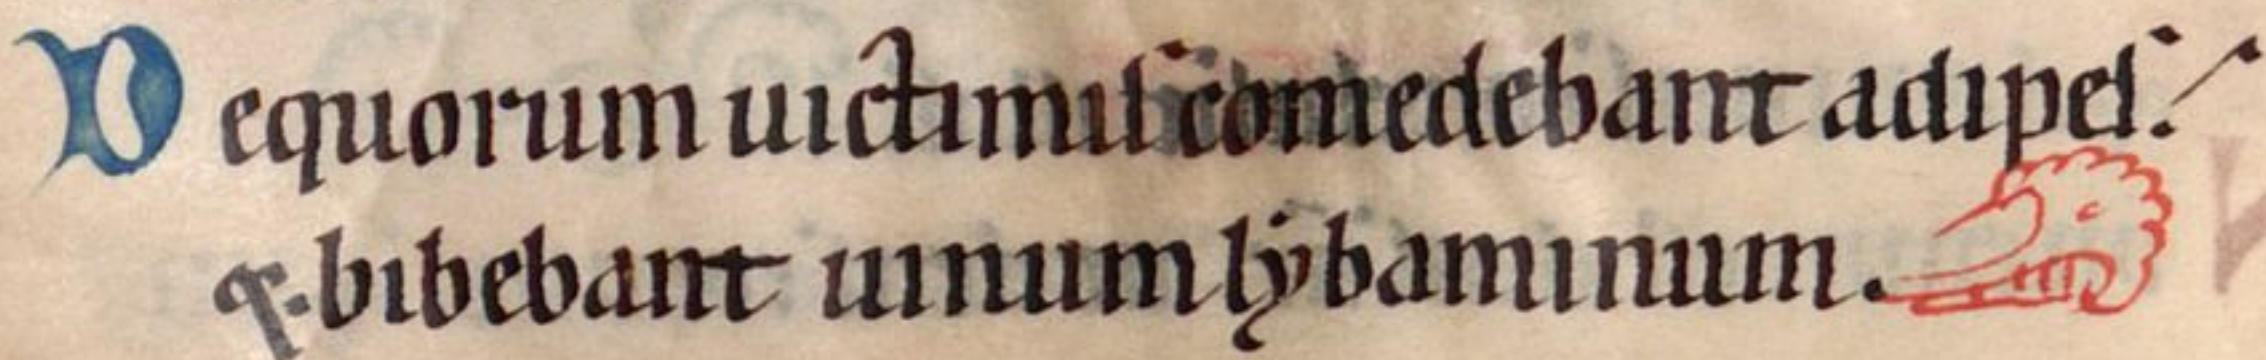 De quorum uictimis comedebant adipes:
⁊ bibebant uinum lybaminum.